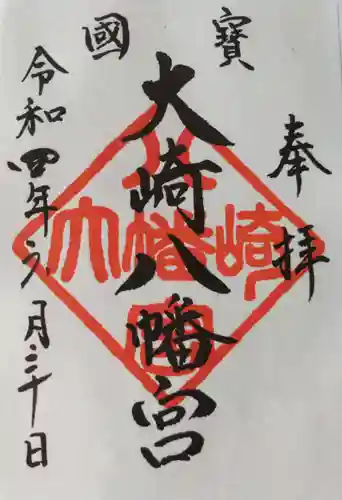 奉拝
寶國
大崎八幡宮
令和四年六月三十日
大崎八幡宮